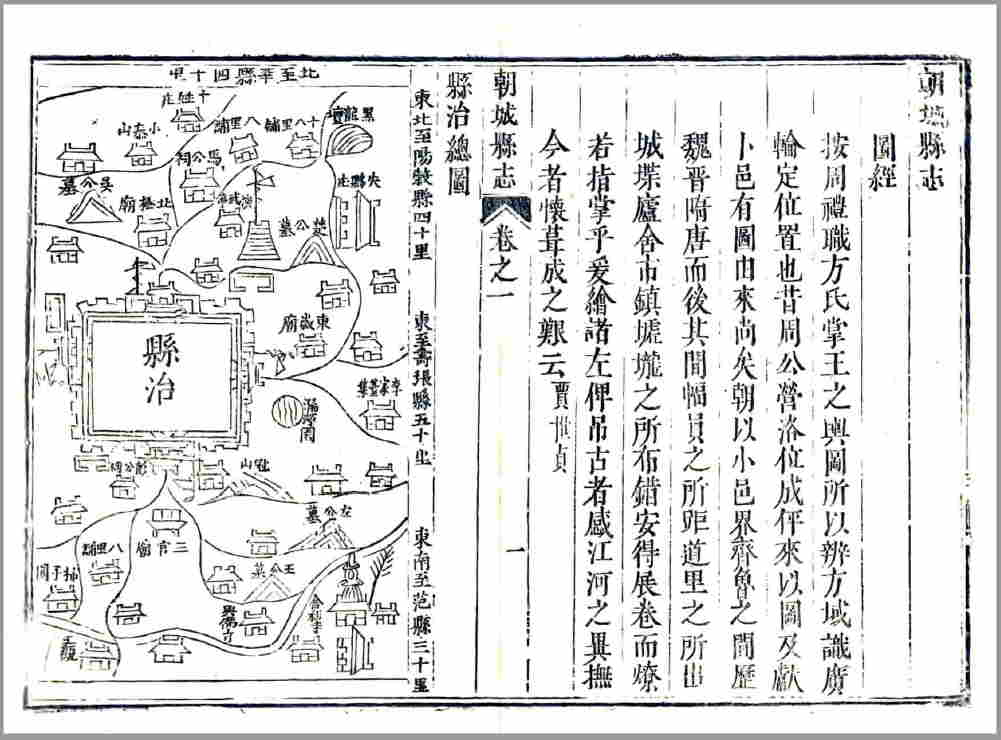 朝城縣志
圖經
按周禮職方氏掌王之輿圖所以辨方域識廣
輪定位置也昔周公營洛位成伻來以圖及獻
卜邑有圖由來尚矣朝以小邑界齊魯之間歷
魏晉隋唐而後其間幅員之所距道里之所出
城堞廬舍市鎮墟壠之所布錯安得展卷而燎
若指掌乎爰繪諸左俾吊古者感江河之異撫
今者懷葺成之艱云
朝城縣志
卷之一
一
縣治總圖
東北至陽穀縣四十里
東至壽張縣五十里
東南至范縣三十里
北至莘縣四十里
黑龍潭
十八里舖
八里舖
小泰山
馬公祠
吳公墓
北極廟
楚公墓
東嶽廟
李家臺集
縣治
漏澤園
左公墓
三官廟
八里舖
王公墓